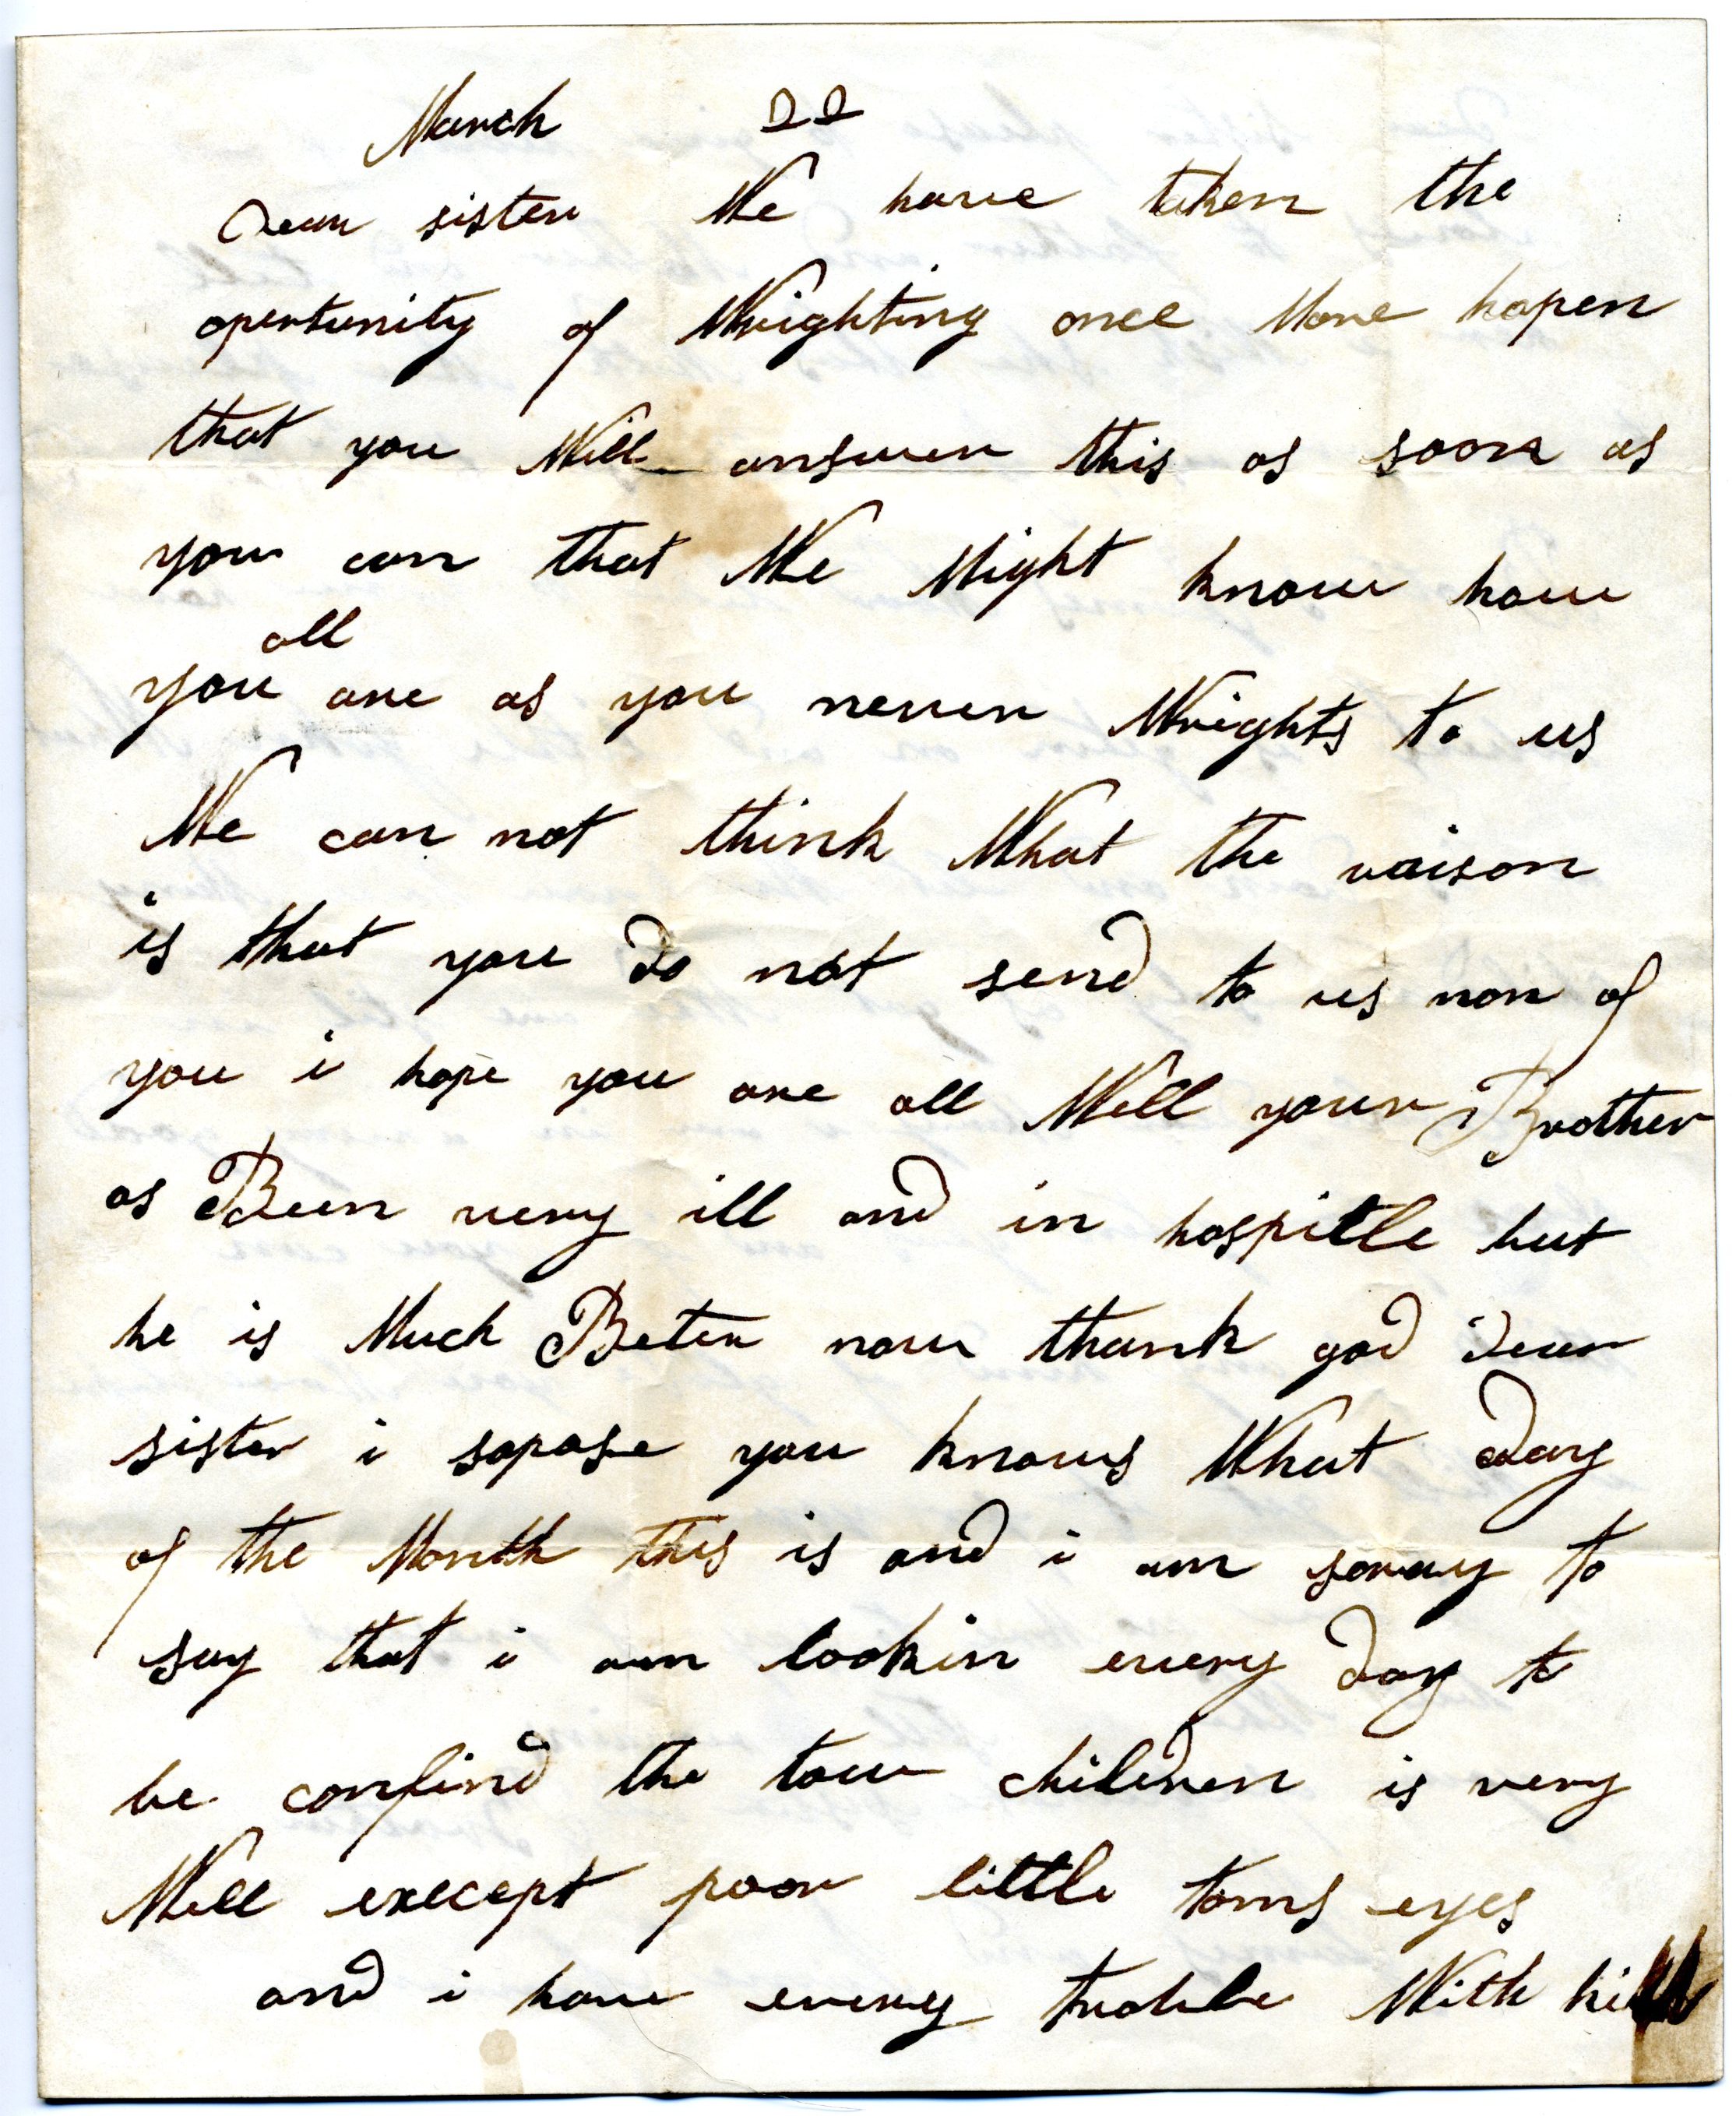 March 22
Dear sister We have taken the
opertunity of Wrighting once More hopen
that you Will answer this as soon as
you can that We Might know how
all
you are as you never Wrights to us
We can not think What the raison
is that you do not send to us non of
you i hope you are all Well your Brother
as Been very ill and in hospitle but
he is Much Beter now thank god dear
sister i sopose you knows What day
of the Month this is and i am soray to
say that i am lookin every day to
be confind the tow children is very
Well execept poor little toms eyes
and i have every truoble With him